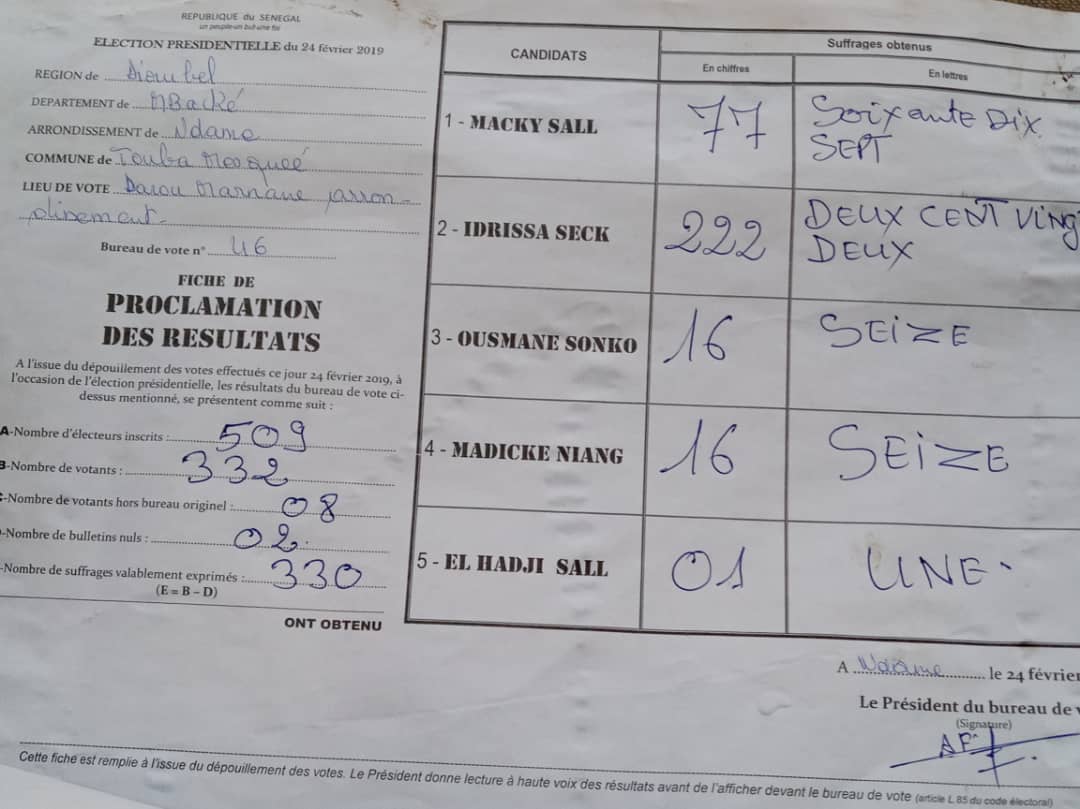 REPUBLIQUE du SENEGAL
un peuple-un but-une foi
ELECTION PRESIDENTIELLE du 24 février 2019
REGION de Diourbel
DEPARTEMENT de MBacké
ARRONDISSEMENT de Ndame
COMMUNE de Touba Mosqueé
LIEU DE VOTE Darou Marnane
Bureau de vote n° 46
FICHE DE
PROCLAMATION
DES RESULTATS
A l'issue du dépouillement des votes effectués ce jour 24 février 2019, à
l'occasion de l'élection présidentielle, les résultats du bureau de vote ci-
dessus mentionné, se présentent comme suit :
A-Nombre d'électeurs inscrits : 509
B-Nombre de votants : 332
-Nombre de votants hors bureau originel : 08
-Nombre de bulletins nuls : 02
-Nombre de suffrages valablement exprimés : 330
(E = B – D)
ONT OBTENU
CANDIDATS
Suffrages obtenus
En chiffres
En lettres
1 - MACKY SALL 77 Soixante DIX
SEPT
2 - IDRISSA SECK 222 DEUX CENT VING
DEUX
3 - OUSMANE SONKO 16 SEIZE
4 - MADICKE NIANG 16 SEIZE
5 - EL HADJI SALL 01 UNE
A Ndame le 24 février
Le Président du bureau de
(Signature)
Cette fiche est remplie à l'issue du dépouillement des votes. Le Président donne lecture à haute voix des résultats avant de l'afficher devant le bureau de vote (article L 85 du code électoral)